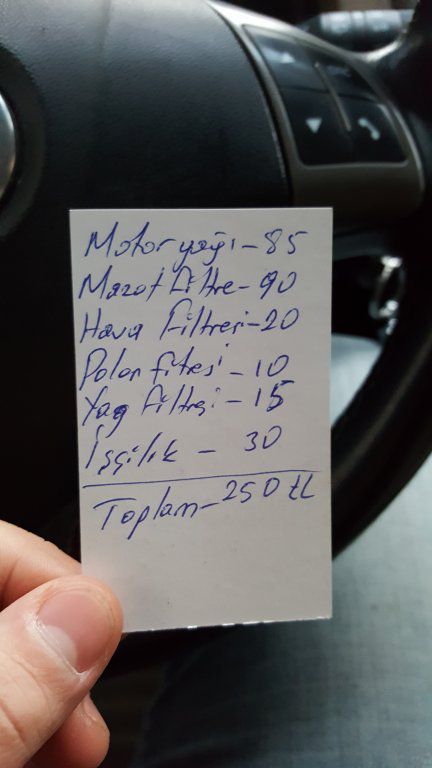 Motor yağı - 85
Mazot Filtre - 90
Hava Filtresi - 20
Polen fitresi - 10
Yag Filtresi - 15
İşçilik - 30
Toplam - 250 tL